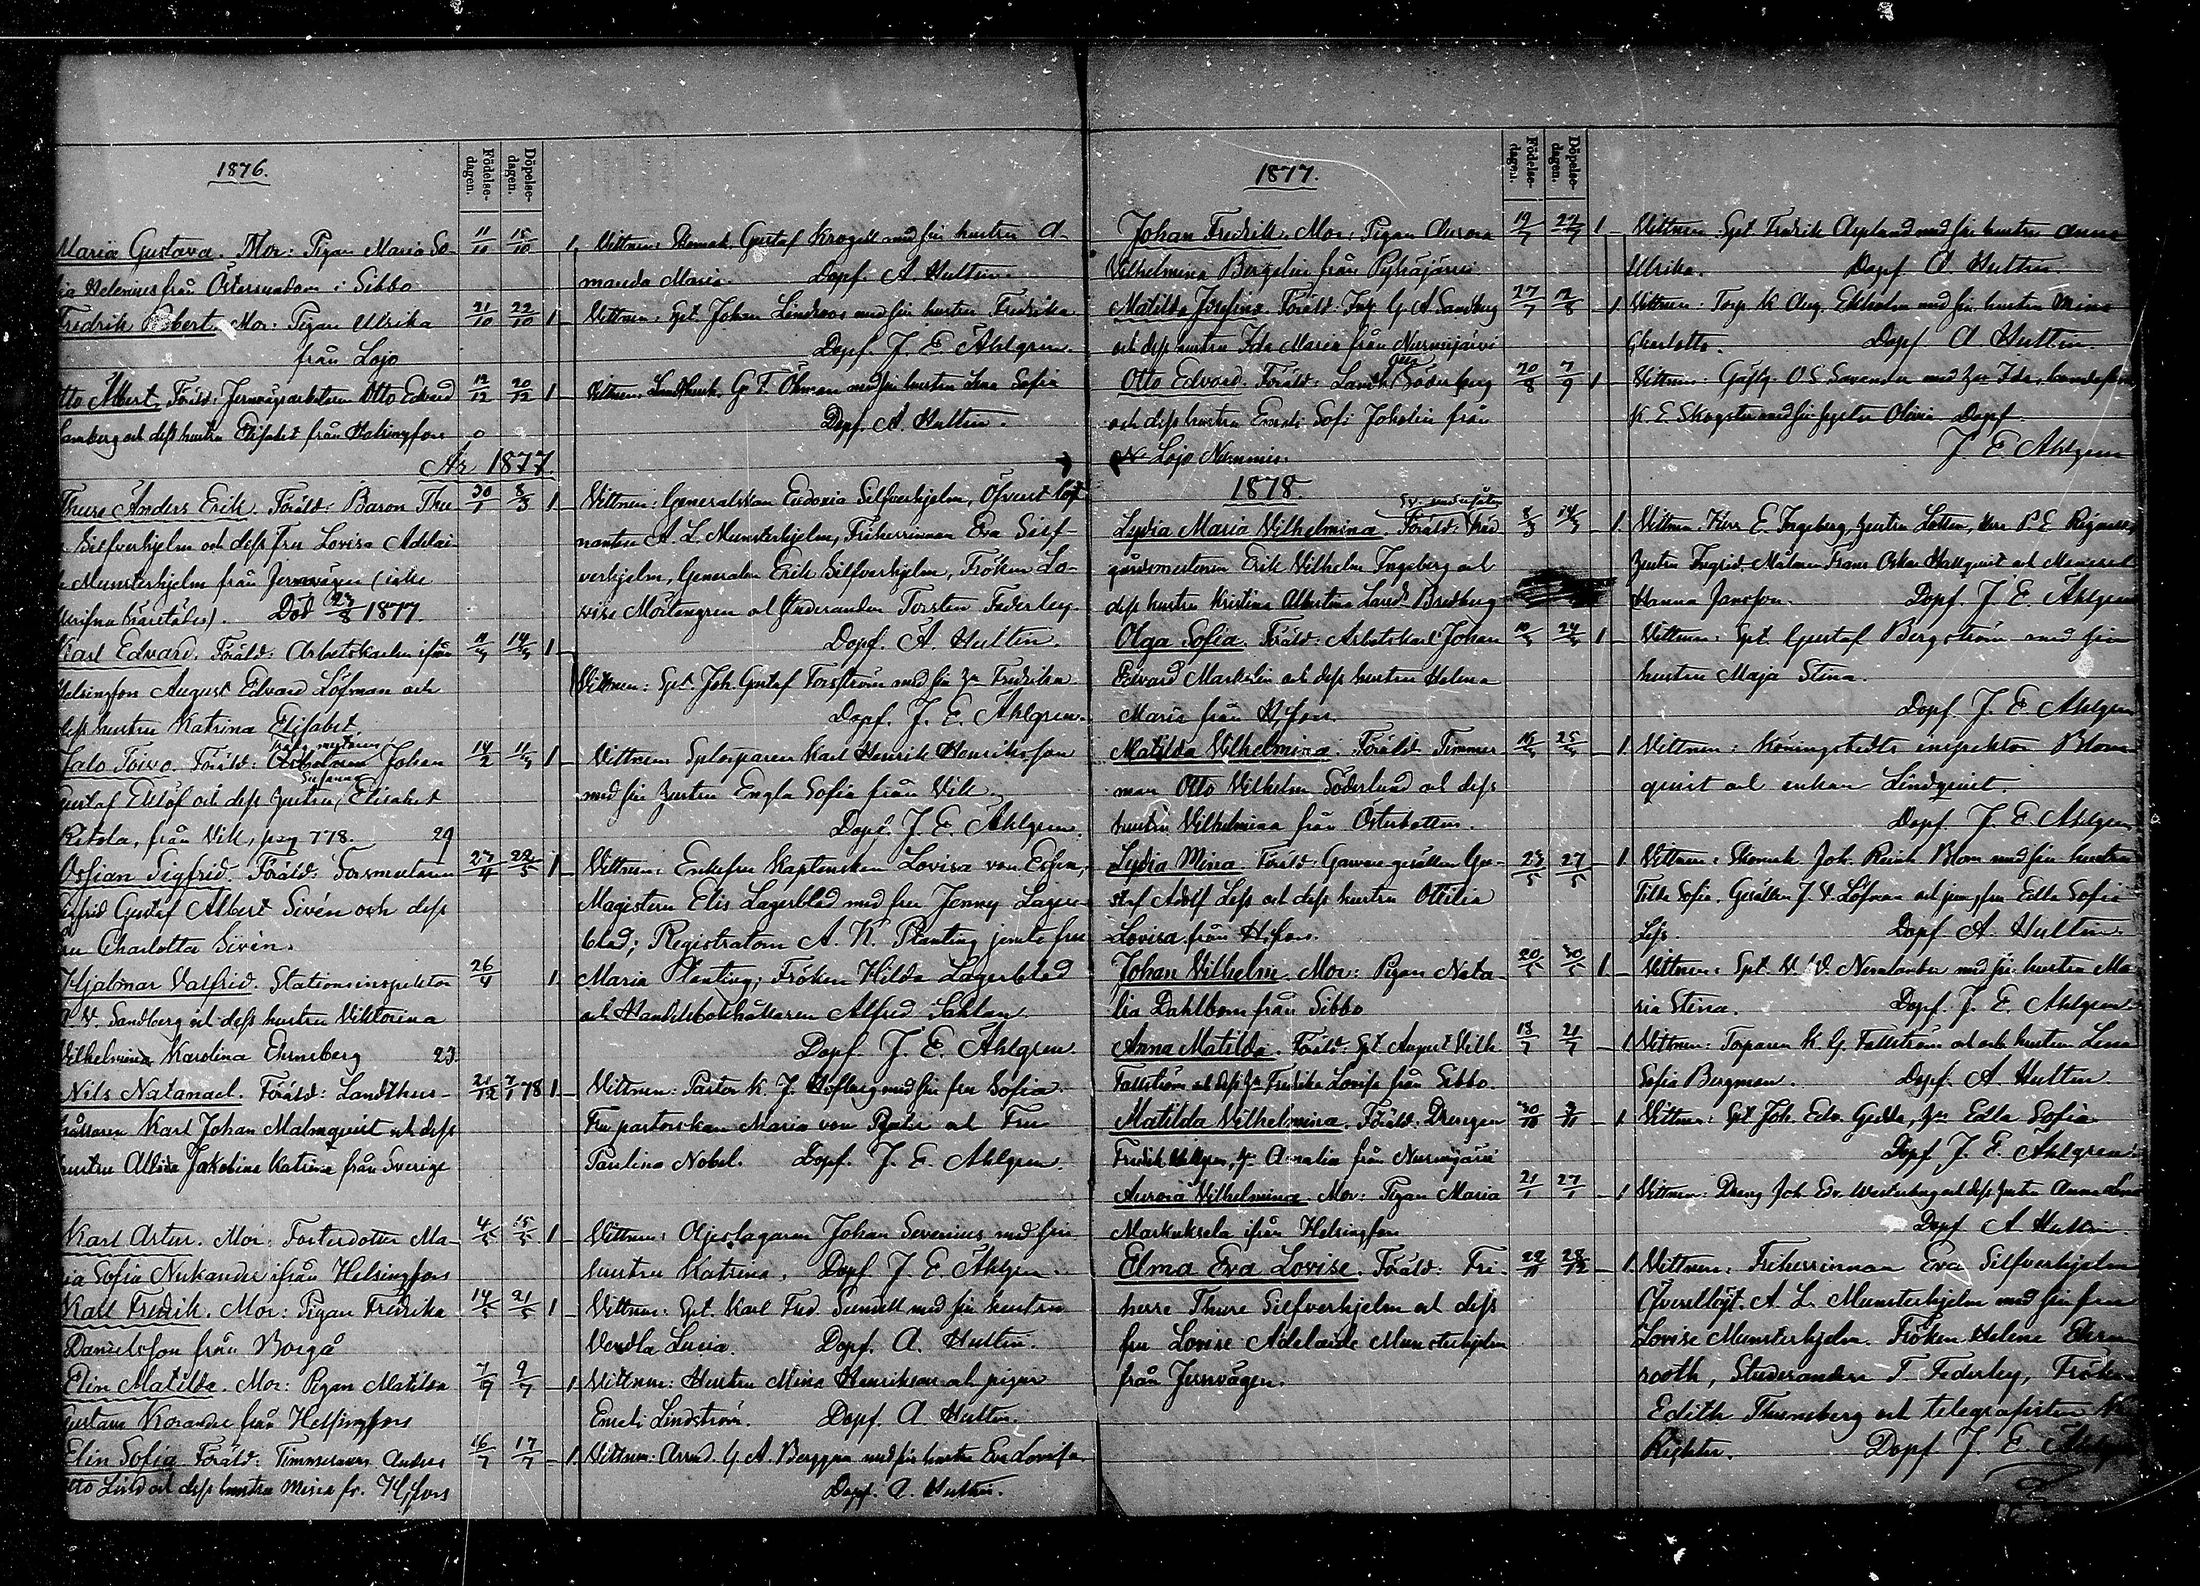 1876.
Födelse-
dagen.
Döpelse-
dagen.
Maria Gustava. Mor: Pigan Maria So-
fia Helenius från Östersundom i Sibbo
11/10 15/10 1
Fredrik Robert. Mor: Pigan Ulrika
från Lojo
21/10 22/10 1
Otto Albert. Föräld: Jernvägsarbetaren Otto Edvard
Lamberg och dess hustru Elisabet från Helsingfors
12/12 20/12 1
År 1877
Thure Anders Erik. Föräld: Baron Thu
Silfverhjelm och dess fru Lovisa Adelai
Munsterhjelm från Jernvägen (icke
Död 23/8 1877.
30/1 8/3 1
Karl Edvard. Föräld: Arbetskarlen ifrån
Helsingfors August Edvard Löfman och
dess hustru Katrina Elisabet
11/3 14/3 1
Jalo Toivo. Föräld: Johan
Susanna
Gustaf Eklöf och dess hustru, Elisabet
Ketola, från Vik, pag 778. 29
14/2 11/3 1
Ossian Sigfrid. Föräld: Forsmästaren
Sigfrid Gustaf Albert Sivén och dess
fru Charlotta Sivén.
27/4 22/5 1
Hjalmar Valfrid. Stationsinspektor
A. V. Sandberg och dess hustru Viktorina
Vilhelmina Karolina Ehrneberg 23.
26/4 1
Nils Natanael. Föräld: Landthus-
hållaren Karl Johan Malmquist och dess
hustru Albina Jakobina Katrina från Sverige
21/12 7/1 78 1
Karl Artur. Mor: Fosterdotter Ma-
ria Sofia Nukander ifrån Helsingfors
4/5 15/5 1
Karl Fredrik. Mor: Pigan Fredrika
Danielsson från Borgå
14/5 21/5 1
Elin Matilda. Mor: Pigan Matilda
Gustava Korander från Helsingfors
7/7 9/7 1
Elin Sofia. Föräld: Timmerman Anders
Otto Lind och dess hustru Maria fr. H:fors
16/7 17/7 1
Vittnen: Skomak. Gustaf Krogell med sin hustru A-
manda Maria. Dopf. A Hultin.
Vittnen: Spt. Johan Lindroos med sin hustru Fredrika
Dopf. J. E. Ahlgren.
Vittnen: G. F. Öhman med sin hustru Lena Sofia
Dopf. A. Hultin.
Vittnen: Generalskan Eudoxia Silfverhjelm, Öfverstlöjt
nanten A. L. Munsterhjelm, Friherrinnan Eva Silf-
verhjelm, Generalen Erik Silfverhjelm, Fröken Lo-
vise Mörtengren och Studeranden Torsten Federley.
Dopf. A. Hultin.
Vittnen: Spt. Joh. Gustaf Forsström med sin hu Fredrika
Dopf. J. E. Ahlgren.
Vittnen: Sptorparen Karl Henrik Henriksson
med sin hustru Engla Sofia från Vik.
Dopf. J. E. Ahlgren.
Vittnen: Enkefru Kaptenskan Lovisa von Essen,
Magistern Elis Lagerblad med fru Jenny Lager-
blad; Registratorn A. K. Planting jemte fru
Maria Planting; Fröken Hilda Lagerblad
och Handelsbokhållaren Alfred Sahlan
Dopf. J. E. Ahlgren.
Vittnen: Pastor K. J. Höfberg med sin fru Sofia
Fru pastorskan Maria von Pfaler och Fru
Paulina Nobel. Dopf. J. E. Ahlgren.
Vittnen: Oljeslagaren Johan Sevenius med sin
hustru Katrina. Dopf J E. Ahlgren.
Vittnen: Spt. Karl Fred. Sundell med sin hustru
Vendla Lucia. Dopf. A. Hultin.
Vittnen: Hustru Mina Henriksson och pigan
Emeli Lindström. Dopf. A. Hultin.
Vittnen: Arrend. G. A. Berggren med sin hustru Eva Lovisa.
Dopf. A. Hultin.
1877.
Födelse-
dagen.
Döpelse-
dagen.
Johan Fredrik. Mor: Pigan Aurora
Vilhelmina Bergelin från Pyhäjärvi
19/7 22/7 1
Matilda Josefina. Föräld: Insp G A Sandberg
och dess hustru Ida Maria från Nurmijärvi
27/7 12/8 1
Otto Edvard. Föräld: Landth. Söderberg
och dess hustru Emeli Sofi Joholin från
Lojo Nummis.
20/8 7/9 1
1878.
Lydia Maria Vilhelmina. Föräld: Träd-
gårdsmästaren Erik Vilhelm Ingeberg och
dess hustru Kristina Albertina Lund Bredberg
8/3 14/3 1
Olga Sofia. Föräld: Arbetskarl Johan
Edvard Markelin och dess hustru Helena
Maria från H:fors.
10/3 24/3 1
Matilda Vilhelmina. Föräld Timmer
man Otto Vilhelm Söderlund och dess
hustru Vilhelmina från Österbotten.
16/3 25/3 1
Lydia Mina Föräld: Garvaregesällen Gu-
staf Adolf Lefs och dess hustru Ottilia
Lovisa från H:fors.
23/5 27/5 1
Johan Vilhelm. Mor: Pigan Nata-
lia Dahlbom från Sibbo
20/5 30/5 1
Anna Matilda. Föräld: Spt August Vilh
Fallström och dess hu Fredrika Lovisa från Sibbo.
18/7 21/7 1
Matilda Vilhelmina. Föräld: Drengen
Fredrik hu Amalia från Nurmijärvi
30/10 9/11 1
Aurora Vilhelmina. Mor: Pigan Maria
Markuksela ifrån Helsingfors
21/1 27/1 1
Elma Eva Lovise. Föräld: Fri-
herre Thure Silfverhjelm och dess
fru Lovise Adelaide Munsterhjelm
från Jernvägen.
22/11 28/12 1
Vittnen: Spt. Fredrik Asplund med sin hustru Anna
Ulrika. Dopf A. Hultin.
Vittnen: Torp. K Aug. Ekholm med sin hustru Mina
Charlotta. Dopf A Hultin.
Vittnen: Gästg. O. S. Savander med hu Ida,
K. E. Skogster med sin syster Olivia Dopf
J E Ahlgren
Vittnen Herr E. Ingeberg, hustru Lotten, Herr P. E.
hustru Ingrid. Målaren Frans Oskar Hallquist och
Hanna Jansson. Dopf. J. E. Ahlgren
Vittnen: Spt. Gustaf Bergström med sin
hustru Maja Stina.
Dopf. J. E. Ahlgren
Vittnen: Köningstedts inspektor Blom
quist och enkan Lindquist.
Dopf. J. E. Ahlgren
Vittnen: Skomak Joh. Reinh Blom med sin hustru
Sofia. Gesällen J. V. Löfman och jungfru Edla Sofia
Lefs. Dopf A. Hultin.
Vittnen: Spt. V. Nurmlander med sin hustru Ma-
ria Stina. Dopf. J. E. Ahlgren
Vittnen: Torparen K G. Fallström och hustru Lena
Sofia Bergman. Dopf. A. Hultin.
Vittnen: Spt Joh. Edv. Gedda, hu Edla Sofia
Dopf J. E. Ahlgren
Vittnen: Dreng Joh. Edv. Westerberg och dess hustru Anna
Dopf A Hultin.
Vittnen: Friherrinnan Eva Silfverhjelm
Öfverstlöjt. A L. Munsterhjelm med sin fru
Lovise Munsterhjelm. Fröken Helene Ehrn
rooth, Studeranden T Federley, Fröken
Edith Thuneberg och telegrafisten
Richter. Dopf J. E Ahlgren